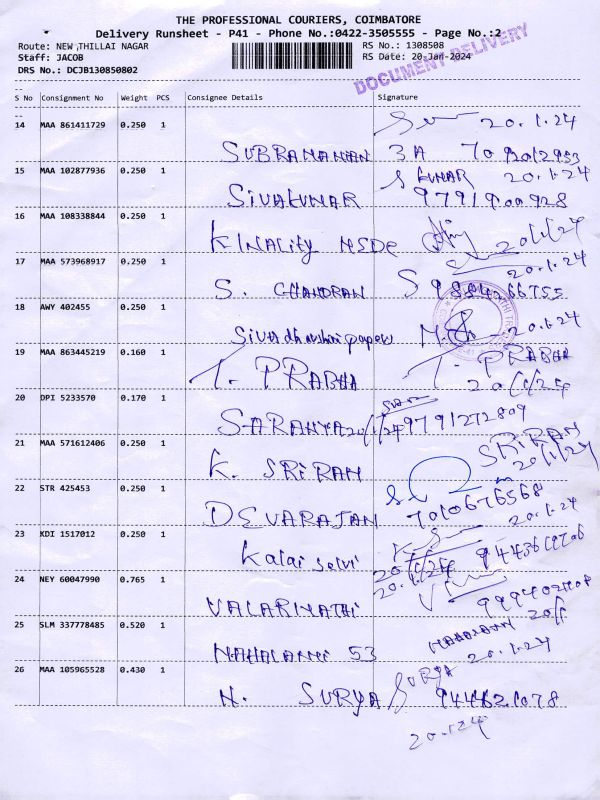 THE PROFESSIONAL COURIERS, COIMBATORE
Delivery Runsheet - P41 - Phone No.:0422-3505555 - Page No.:2
Route: NEW THILLAI NAGAR RS No.: 1308508
Staff: JACOB RS Date: 20-Jan-2024
DRS No.: DCJB130850802
DOCUMENT DELIVERY
S No Consignment No Weight PCS Consignee Details Signature
14 MAA 861411729 0.250 1 20.1.24
SUBRAMANIAN 3A
15 MAA 102877936 0.250 1 20.1.24
SIVAKUMAR 9791900928
16 MAA 108338844 0.250 1
KINACITY MSDE 20/1/24
17 MAA 573968917 0.250 1 20.1.24
S. CHANDRAN
18 AWY 402455 0.250 1
Sivadharshini papers 20.1.24
19 MAA 863445219 0.160 1
T. PRABHA T. PRABHA
20/1/24
20 DPI 5233570 0.170 1
SARANYA 20/1/24 9791272809
21 MAA 571612406 0.250 1 SRIRAM
K. SRIRAM 20/1/24
22 STR 425453 0.250 1
DEVARAJAN 7010676568
23 KDI 1517012 0.250 1 20.1.24
Kalai selvi
20/1/24
24 NEY 60047990 0.765 1 20.1.24
VALARMATHI
25 SLM 337778485 0.520 1
MAHALAXMI 53 20.1.24
26 MAA 105965528 0.430 1 SURYA
N. SURYA
20.1.24